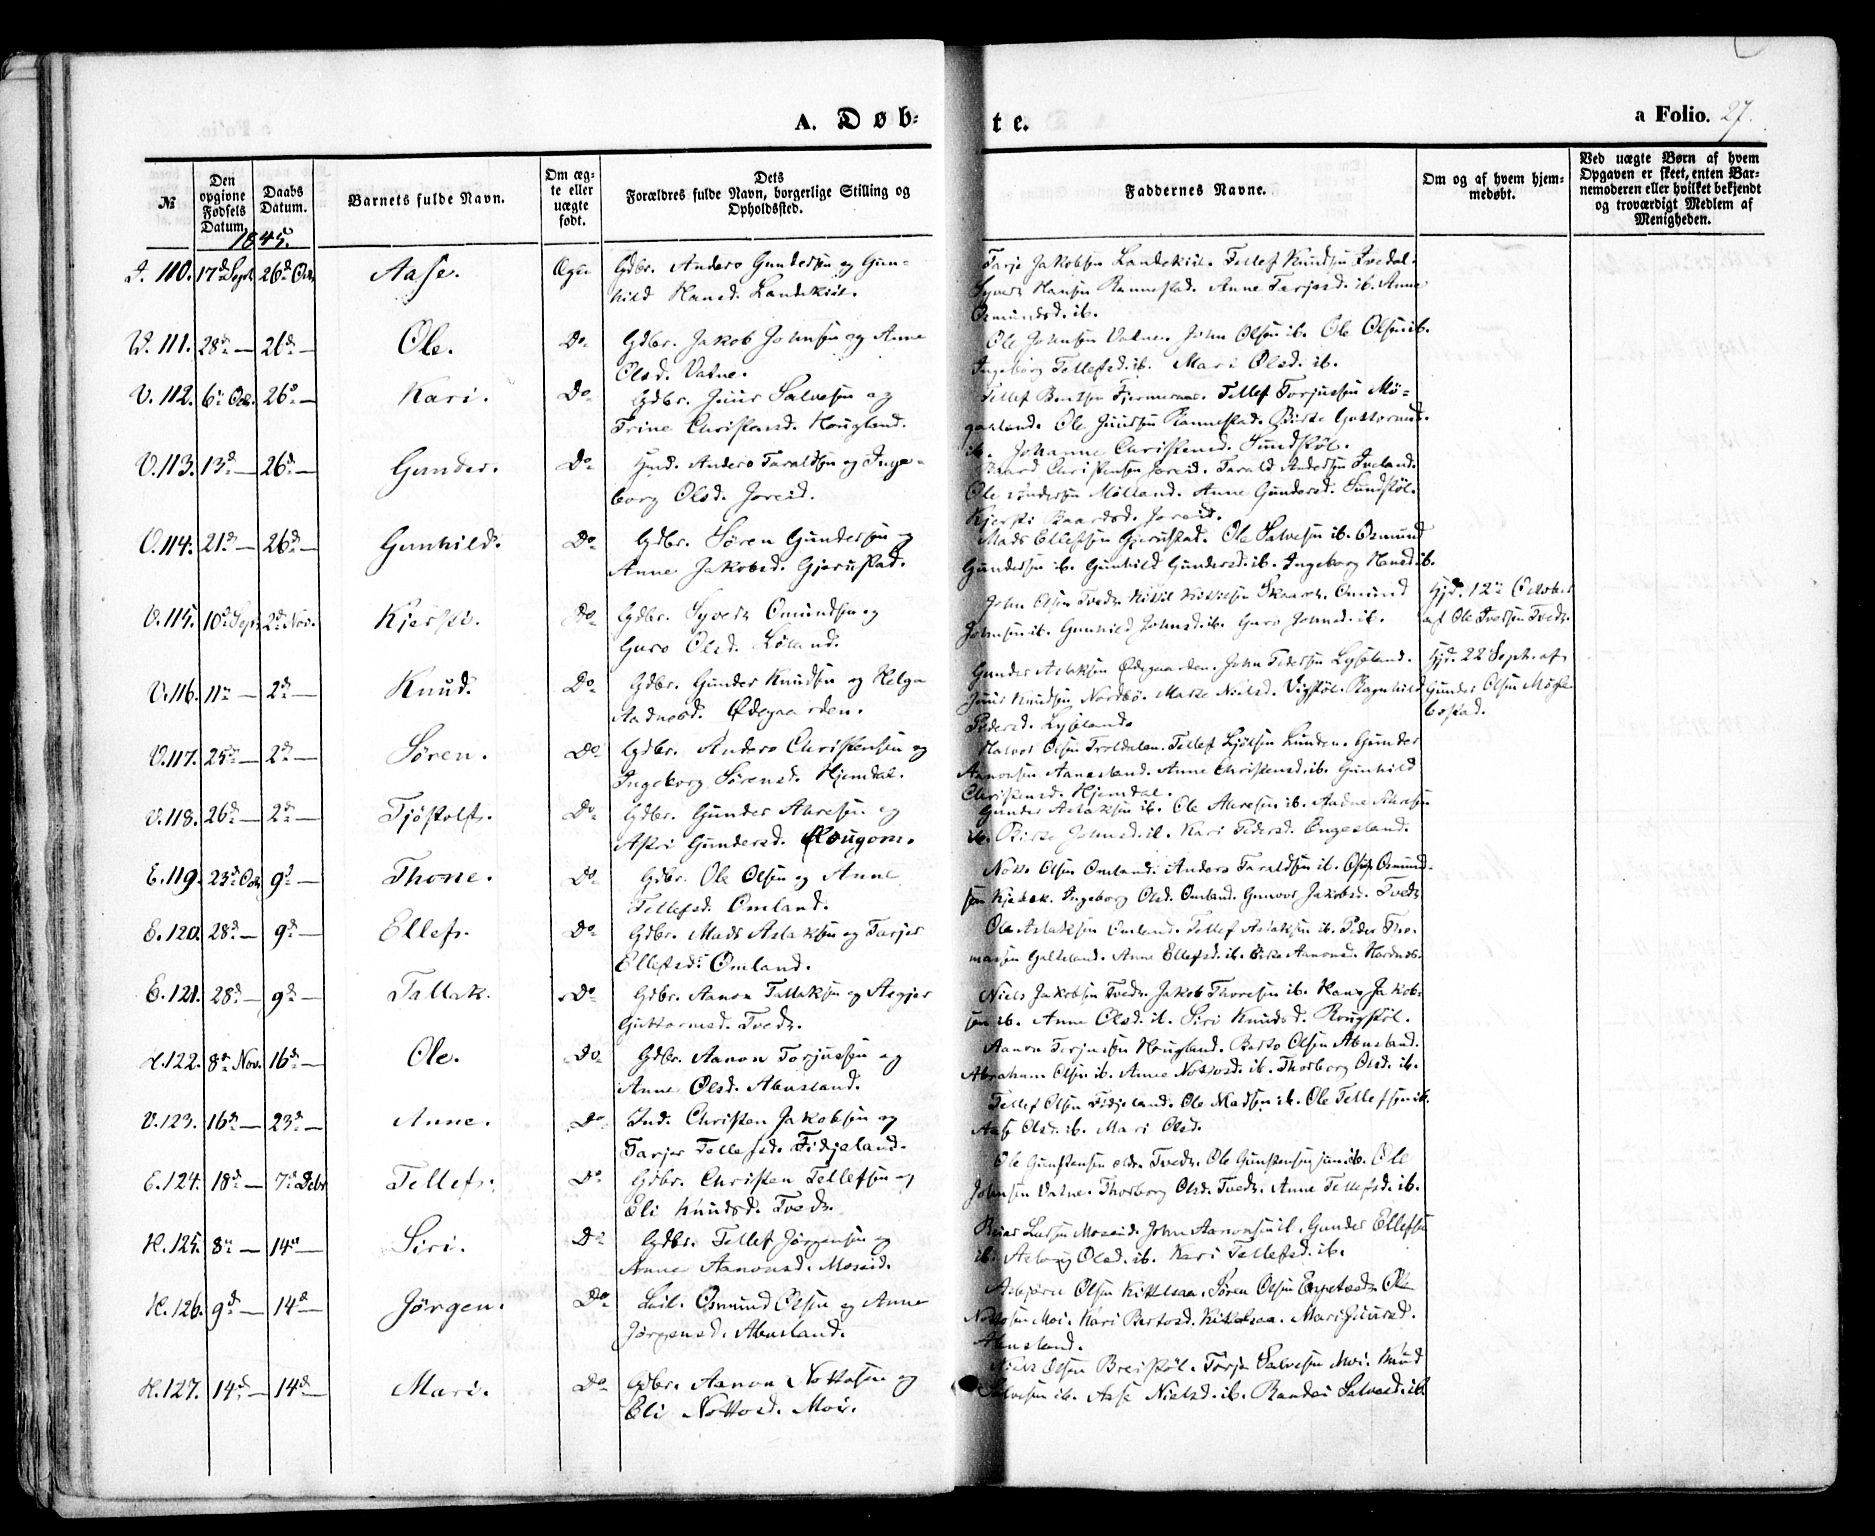 A. Døb-
te.
a Folio. 27.
№
Den opgivne Fødsels Datum.
Daabs Datum.
Barnets fulde Navn.
Om ægte eller uægte født.
Dets Forældres fulde Navn, borgerlige Stilling og Opholdssted.
Faddernes Navne.
Om og af hvem hjemmedøbt.
Ved uægte Børn af hvem Opgaven er skeet, enten Barnemoderen eller hvilket bekjendt og troværdigt Medlem af Menigheden.
1845.
110. 17d Sept. 26d Oct. Aase. Ægte Gdbr. Anders Gundersen og Gun-
hild Hansd. Landskiöl.
Tarje Jakobsen Landskiöl. Tellef Knudsen Tvedal.
Syvert Hansen Rannestad. Anne Tarjesd. ib. Anne
Osmundsd. ib.
V. 111. 28de — 26d — Ole. Do Gdbr. Jakob Johnsen og Anne
Olsd. Vatne.
Ole Johnsen Vatne. John Olsen ib. Ole Olsen ib.
Ingebörg Tellefsd. ib. Mari Olsd. ib.
V. 112. 6te Oct. 26d — Kari. Do Gdbr. Juur Salvesen og
Trine Christensd. Hougland.
Tellef Bentsen Fjermeraas. Tellef Torjussen Mö-
gaaland. Ole Juursen Rannestad. Birte Guttormsd.
ib. Johanne Christensd. Sundstöl.
V. 113. 13d — 26d — Gunder. Do Hmd. Anders Taraldsen og Inge-
borg Olsd. Joreid.
Baard Christensen Joreid. Tarald Andersen Iveland.
Ole Gundersen Mölland. Anne Gundersd. Sundstöl.
Kjersti Baardsd. Joreid.
V. 114. 21de — 26d — Gunhild. Do Gdbr. Sören Gundersen og
Anne Jakobsd. Gjerustad.
Mads Ellefsen Gjerustad. Ole Salvesen ib. Osmund
Gundersen ib. Gunhild Gundersd. ib. Ingeborg Hansd. ib.
V. 115. 10d Sept. 2d Nov. Kjersti. Do Gdbr. Syvert Omundsen og
Guro Olsd. Röland.
John Olsen Tvedt. Omund
Johnsen ib. Gunhild Johnsd. ib. Guro Johnsd. ib.
Hjd. 12te October
af Ole Iversen Tvedt.
V. 116. 11te — 2d — Knud. Do Gdbr. Gunder Knudsen og Helga
Aadnesd. Ödegaarden.
Gunder Aslaksen Ödegaarden. John Pedersen Lyseland.
Juur Knudsen Nordbö. Marte Nielsd. Vigstöl. Ragnhild
Pedersd. Lyseland.
Hjd. 22 Septb. af
Gunder Olsen Mögle-
bostad.
V. 117. 25de — 2d — Sören. Do Gdbr. Anders Christensen og
Ingeborg Sörensd. Hjemdal.
Halvor Olsen Troldalen. Tellef Ljölsen Lunden. Gunder
Aanonsen Aanesland. Anne Christensd. ib. Gunhild
Christensd. Hjemdal.
V. 118. 26d — 2d — Tjöstolf. Do Gdbr. Gunder Aavesen og
Askri Gundersd. Hougom.
Gunder Aslaksen ib. Ole Aavesen ib. Aadne Aavesen
ib. Birte Johnsd. ib. Kari Pedersd. Engesland.
E. 119. 23d Oct. 9d — Thone. Do Gdbr. Ole Olsen og Anne
Tellefsd. Omland.
Notto Olsen Omland. Anders Taraldsen ib. Osmund-
sen Kjetsaa. Ingeborg Olsd. Omland. Gunvor Jakobsd. Tvedt.
E. 120. 28d — 9d — Ellef. Do Gdbr. Mads Aslaksen og Tarjer
Ellefsd. Omland.
Ole Aslaksen Omland. Tellef Aslaksen ib. Peder Tho-
massen Galteland. Anne Ellefsd. ib. Birte Aanonsd. Hardnes.
E. 121. 28d — 9d — Tallak. Do Gdbr. Aanon Tallaksen og Asgjer
Guttormsd. Tvedt.
Niels Jakobsen Tvedt. Jakob Thoresen ib. Hans Jakob-
sen ib. Anne Olsd. ib. Siri Knudsd. Rougstöl.
122. 8de Nov. 16d — Ole. Do Gdbr. Aanon Torjussen og
Anne Olsd. Abusland.
Aanon Torjussen Hougland. Berto Olsen Abusland.
Abraham Olsen ib. Anne Nottosd. ib. Thorborg Olsd. ib.
V. 123. 16d — 23d — Anne. Do Ind. Christen Jakobsen og
Tarjer Tellefsd. Fidjeland.
Tellef Olsen Fidjeland. Ole Madsen ib. Ole Tellefsen ib.
Aase Olsd. ib. Mari Olsd.
E. 124. 18d — 7d Debr. Tellef. Do Gdbr. Christen Tellefsen og
Eli Knudsd. Tvedt.
Ole Gunstensen eldr. Tvedt. Ole Gunstensen jun. ib. Ole
Johnsen Vatne. Thorborg Olsd. Tvedt. Anne Tellefsd. ib.
H. 125. 8de — 14d — Siri. Do Gdbr. Tellef Jörgensen og
Anne Aanonsd. Moseid.
Moseid. John Aanonsen ib. Gunder Ellefsen
ib. Asborg Olsd. ib. Kari Tellefsd. ib.
H. 126. 9d — 14d — Jörgen. Do Osmund Olsen og Anne
Jörgensd. Abusland.
Asbjörn Olsen Kittelsaa. Sören Olsen Engestedt. Ole
Nottosen Moi. Kari Bertosd. Kittelsaa. Mari Juursd.
Abusland.
H. 127. 14d — 14d — Mari. Do Gdbr. Aanon Nottosen og
Eli Nottosd. Moi.
Niels Olsen Breistöl. Tarje Salvesen Moi. Knud
Salvesen ib. Aase Nielsd. ib. Randei Salvesd. ib.